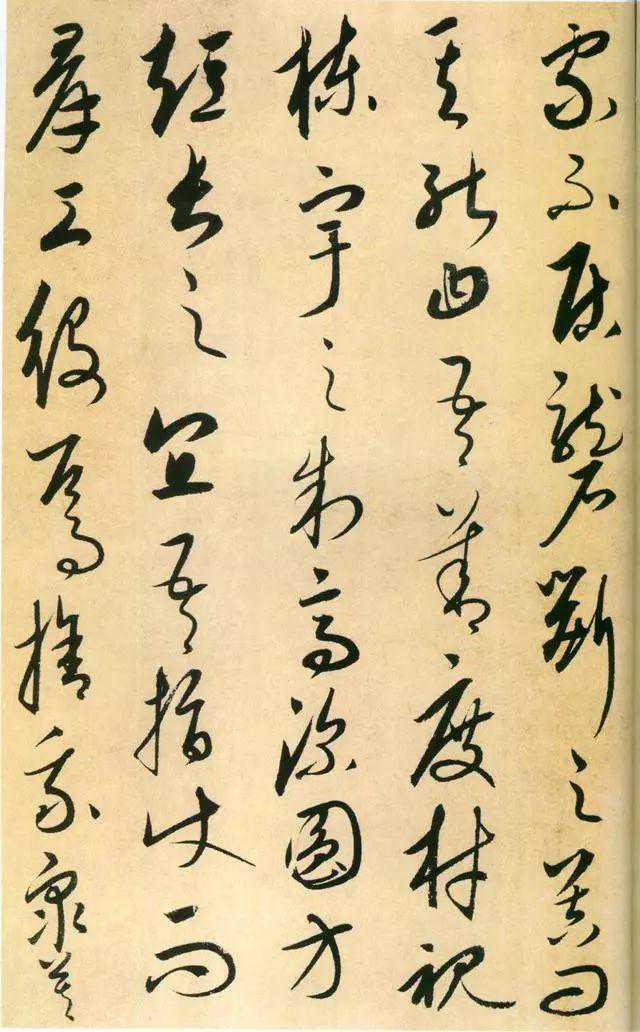 家不居礱斲之器問
其能曰吾善度材視
棟宇之制高深圓方
短長之宜吾指使而
羣工役焉捨我衆莫